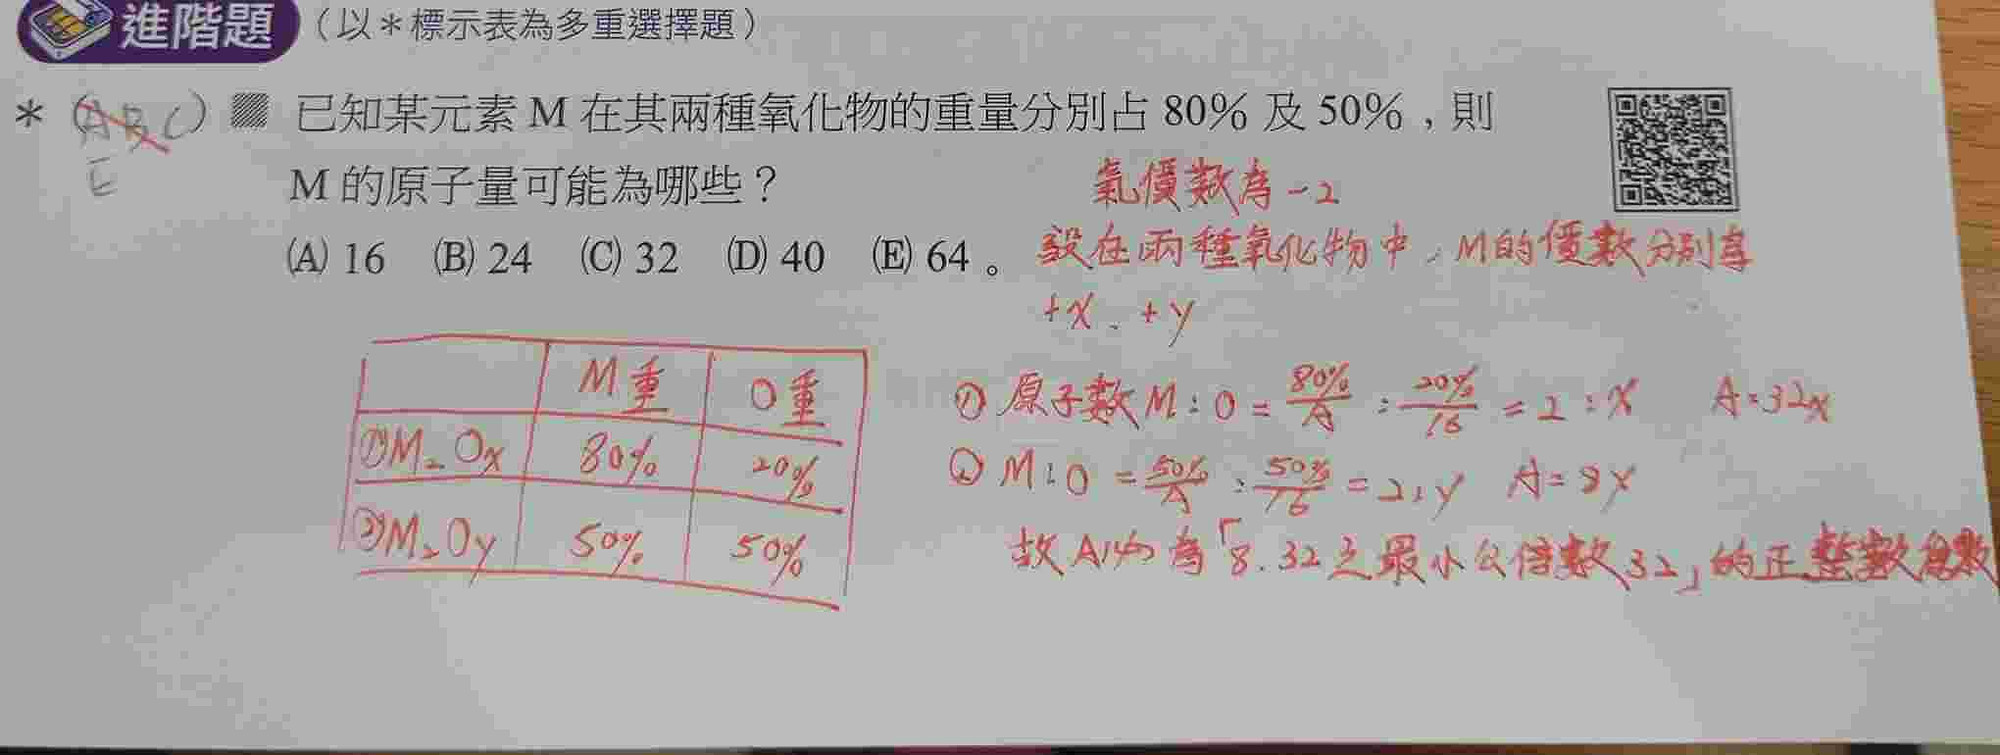 進階題（以＊標示表為多重選擇題）
＊（ABC）已知某元素 M 在其兩種氧化物的重量分別占 80% 及 50%，則
E
M 的原子量可能為哪些？
(A) 16 (B) 24 (C) 32 (D) 40 (E) 64。
氧價數為 -2
設在兩種氧化物中，M的價數分別為
+x、+y
M重 O重
①M₂Ox 80% 20%
②M₂Oy 50% 50%
① 原子數 M：O = 80%/A : 20%/16 = 2 : x A=32x
② M:O = 50%/A : 50%/16 = 2:y A=8y
故A必為「8.32之最小公倍數32」的正整數倍數